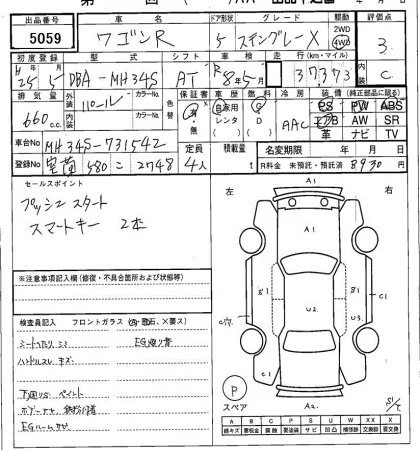 出品番号 車名 ドア形状 グレード 駆動 評価点
5059 ワゴンR 5 スティングレーX 2WD 4WD 3
初度登録 型式 シフト 車検 走行(km・マイル)
H25 5 DBA-MH34S AT R8年5月 37,373 C
排気量 外装 カラーNo. 色替 保証書 車歴 燃料 冷房 装備(純正部品に限る)
660c.c. パール 有・無 自家用 レンタ D G AAC PS PW ABS
内装 カラーNo. AW SR
革 ナビ TV
車台No MH34S-731542 定員 積載量 名変期限 年 月 日
登録No 室蘭 580 こ 2748 4人 t R料金 未預託・預託済 8930円
セールスポイント
プッシュスタート
スマートキー 2本
左 右
A1
A1
S1 S1
U2
C穴 C1
C1
A2
P
スペア
※注意事項記入欄(修復・不具合箇所および状態等)
検査員記入 フロントガラス(飛石、×要ス)
シートコゲ、シミ EG廻り音
ハンドルスレ キズ
下廻りS ペイント
EGルームサビ
A B C P S U W X XX
線キズ 腐食 要塗装 サビ 凹凸 補修跡 要交換 交換済